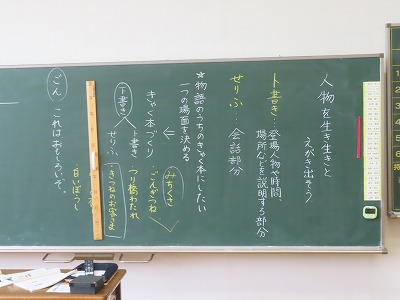 人物を生き生きと
えがき出そう
ト書き…登場人物や時間、
場所などを説明する部分
せりふ…会話部分
☆物語のうちのきゃ本にしたい
一つの場面を決める
←
きゃく本づくり
ト書き
せりふ
みちくさ
ごんぎつね
つり橋わたれ
きつねのお客さま
白いぼうし
ト書き
ごん
これはおもしろいぞ。